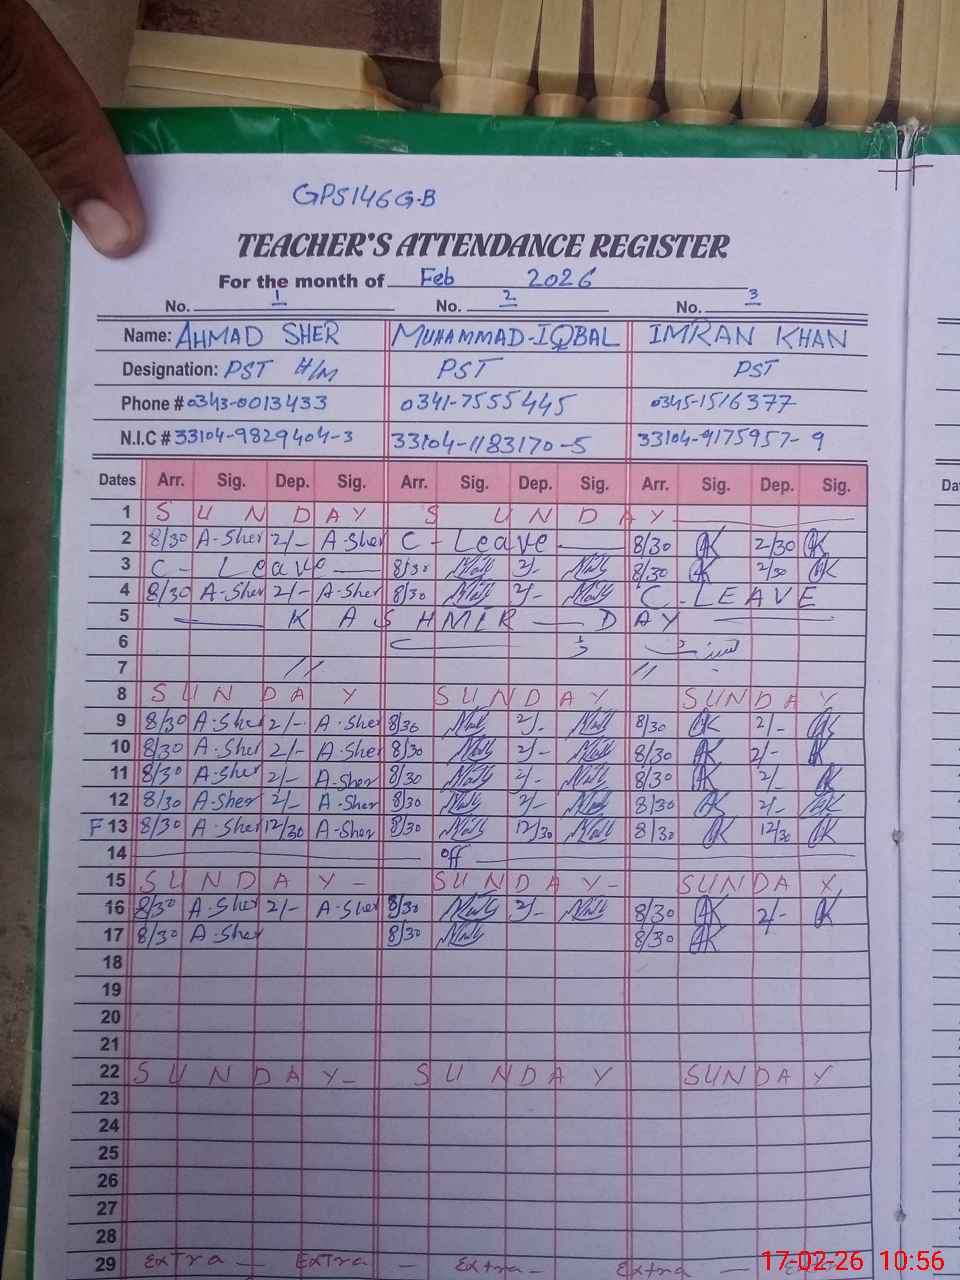 GPS146G.B
TEACHER'S ATTENDANCE REGISTER
For the month of Feb 2026
No. 1 No. 2 No. 3
Name: AHMAD SHER MUHAMMAD-IQBAL IMRAN KHAN
Designation: PST H/M PST PST
Phone # 0343-0013433 0341-7555445 0345-1516377
N.I.C # 33104-9829404-3 33104-1183170-5 33104-9175957-9
Dates Arr. Sig. Dep. Sig. Arr. Sig. Dep. Sig. Arr. Sig. Dep. Sig. Da
1 SUNDAY SUNDAY
2 8/30 A-Sher 2/- A-Sher C-Leave 8/30 2/30
3 C-Leave 8/30 2/- 8/30 2/30
4 8/30 A-Sher 2/- A-Sher 8/30 2/- C-LEAVE
5 KASHMIR DAY
6
7 // //
8 SUNDAY SUNDAY SUNDAY
9 8/30 A-Sher 2/- A-Sher 8/30 2/- 8/30 2/-
10 8/30 A-Sher 2/- A-Sher 8/30 2/- 8/30 2/-
11 8/30 A-Sher 2/- A-Sher 8/30 2/- 8/30 2/-
12 8/30 A-Sher 2/- A-Sher 8/30 2/- 8/30 2/-
F 13 8/30 A-Sher 12/30 A-Sher 8/30 12/30 8/30 12/30
14 off
15 SUNDAY- SUNDAY- SUNDAY
16 8/30 A-Sher 2/- A-Sher 8/30 2/- 8/30 2/-
17 8/30 A-Sher 8/30 8/30
18
19
20
21
22 SUNDAY- SUNDAY SUNDAY
23
24
25
26
27
28
29 Extra - Extra - Extra - Extra - Extra
17-02-26 10:56